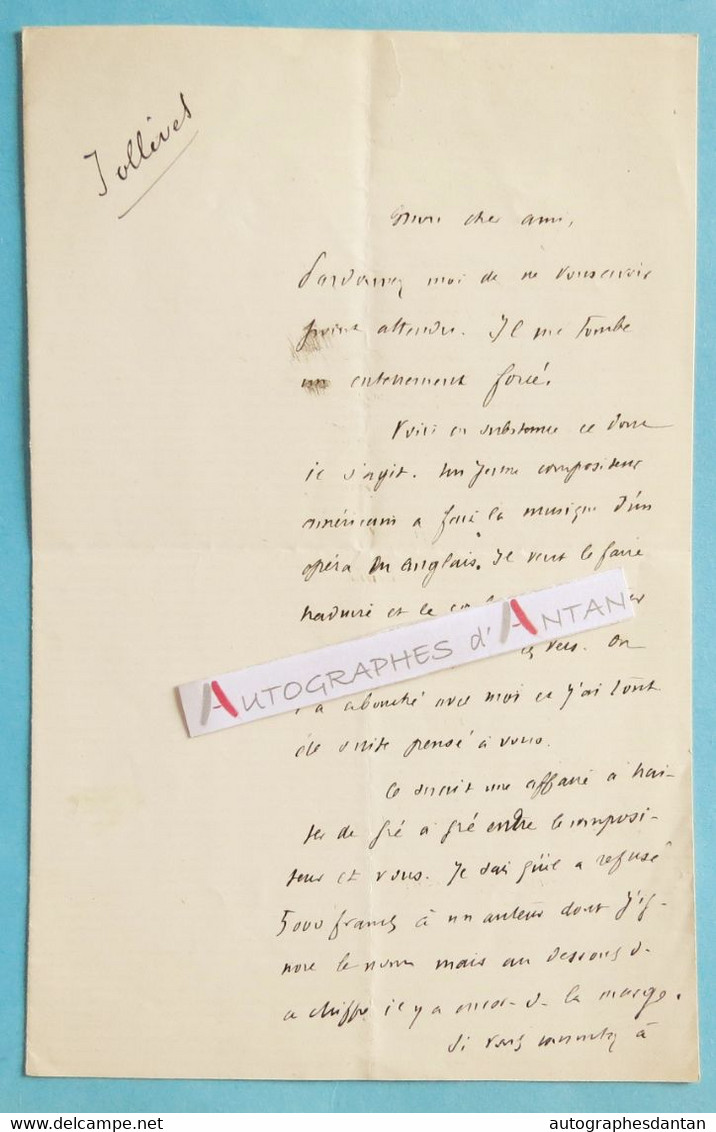 Jollivet
Mon cher ami,
Pardonnez moi de ne vous avoir
point attendu. Il me tombe
un enterrement forcé.
Voici en substance ce dont
il s'agit. Un jeune compositeur
américain a fait la musique d'un
opéra en anglais. Il veut le faire
traduire et le
AUTOGRAPHES d'ANTAN
vers. On
l'a abouché avec moi et j'ai tout
de suite pensé à vous.
Ce serait une affaire à trai-
ter de gré à gré entre le composi-
teur et vous. Je sais qu'il a refusé
5000 francs à un auteur dont j'ig-
nore le nom mais au dessous de
ce chiffre il y a encore de la marge.
Si vous consentez à
autographesdantan
delcampe.net